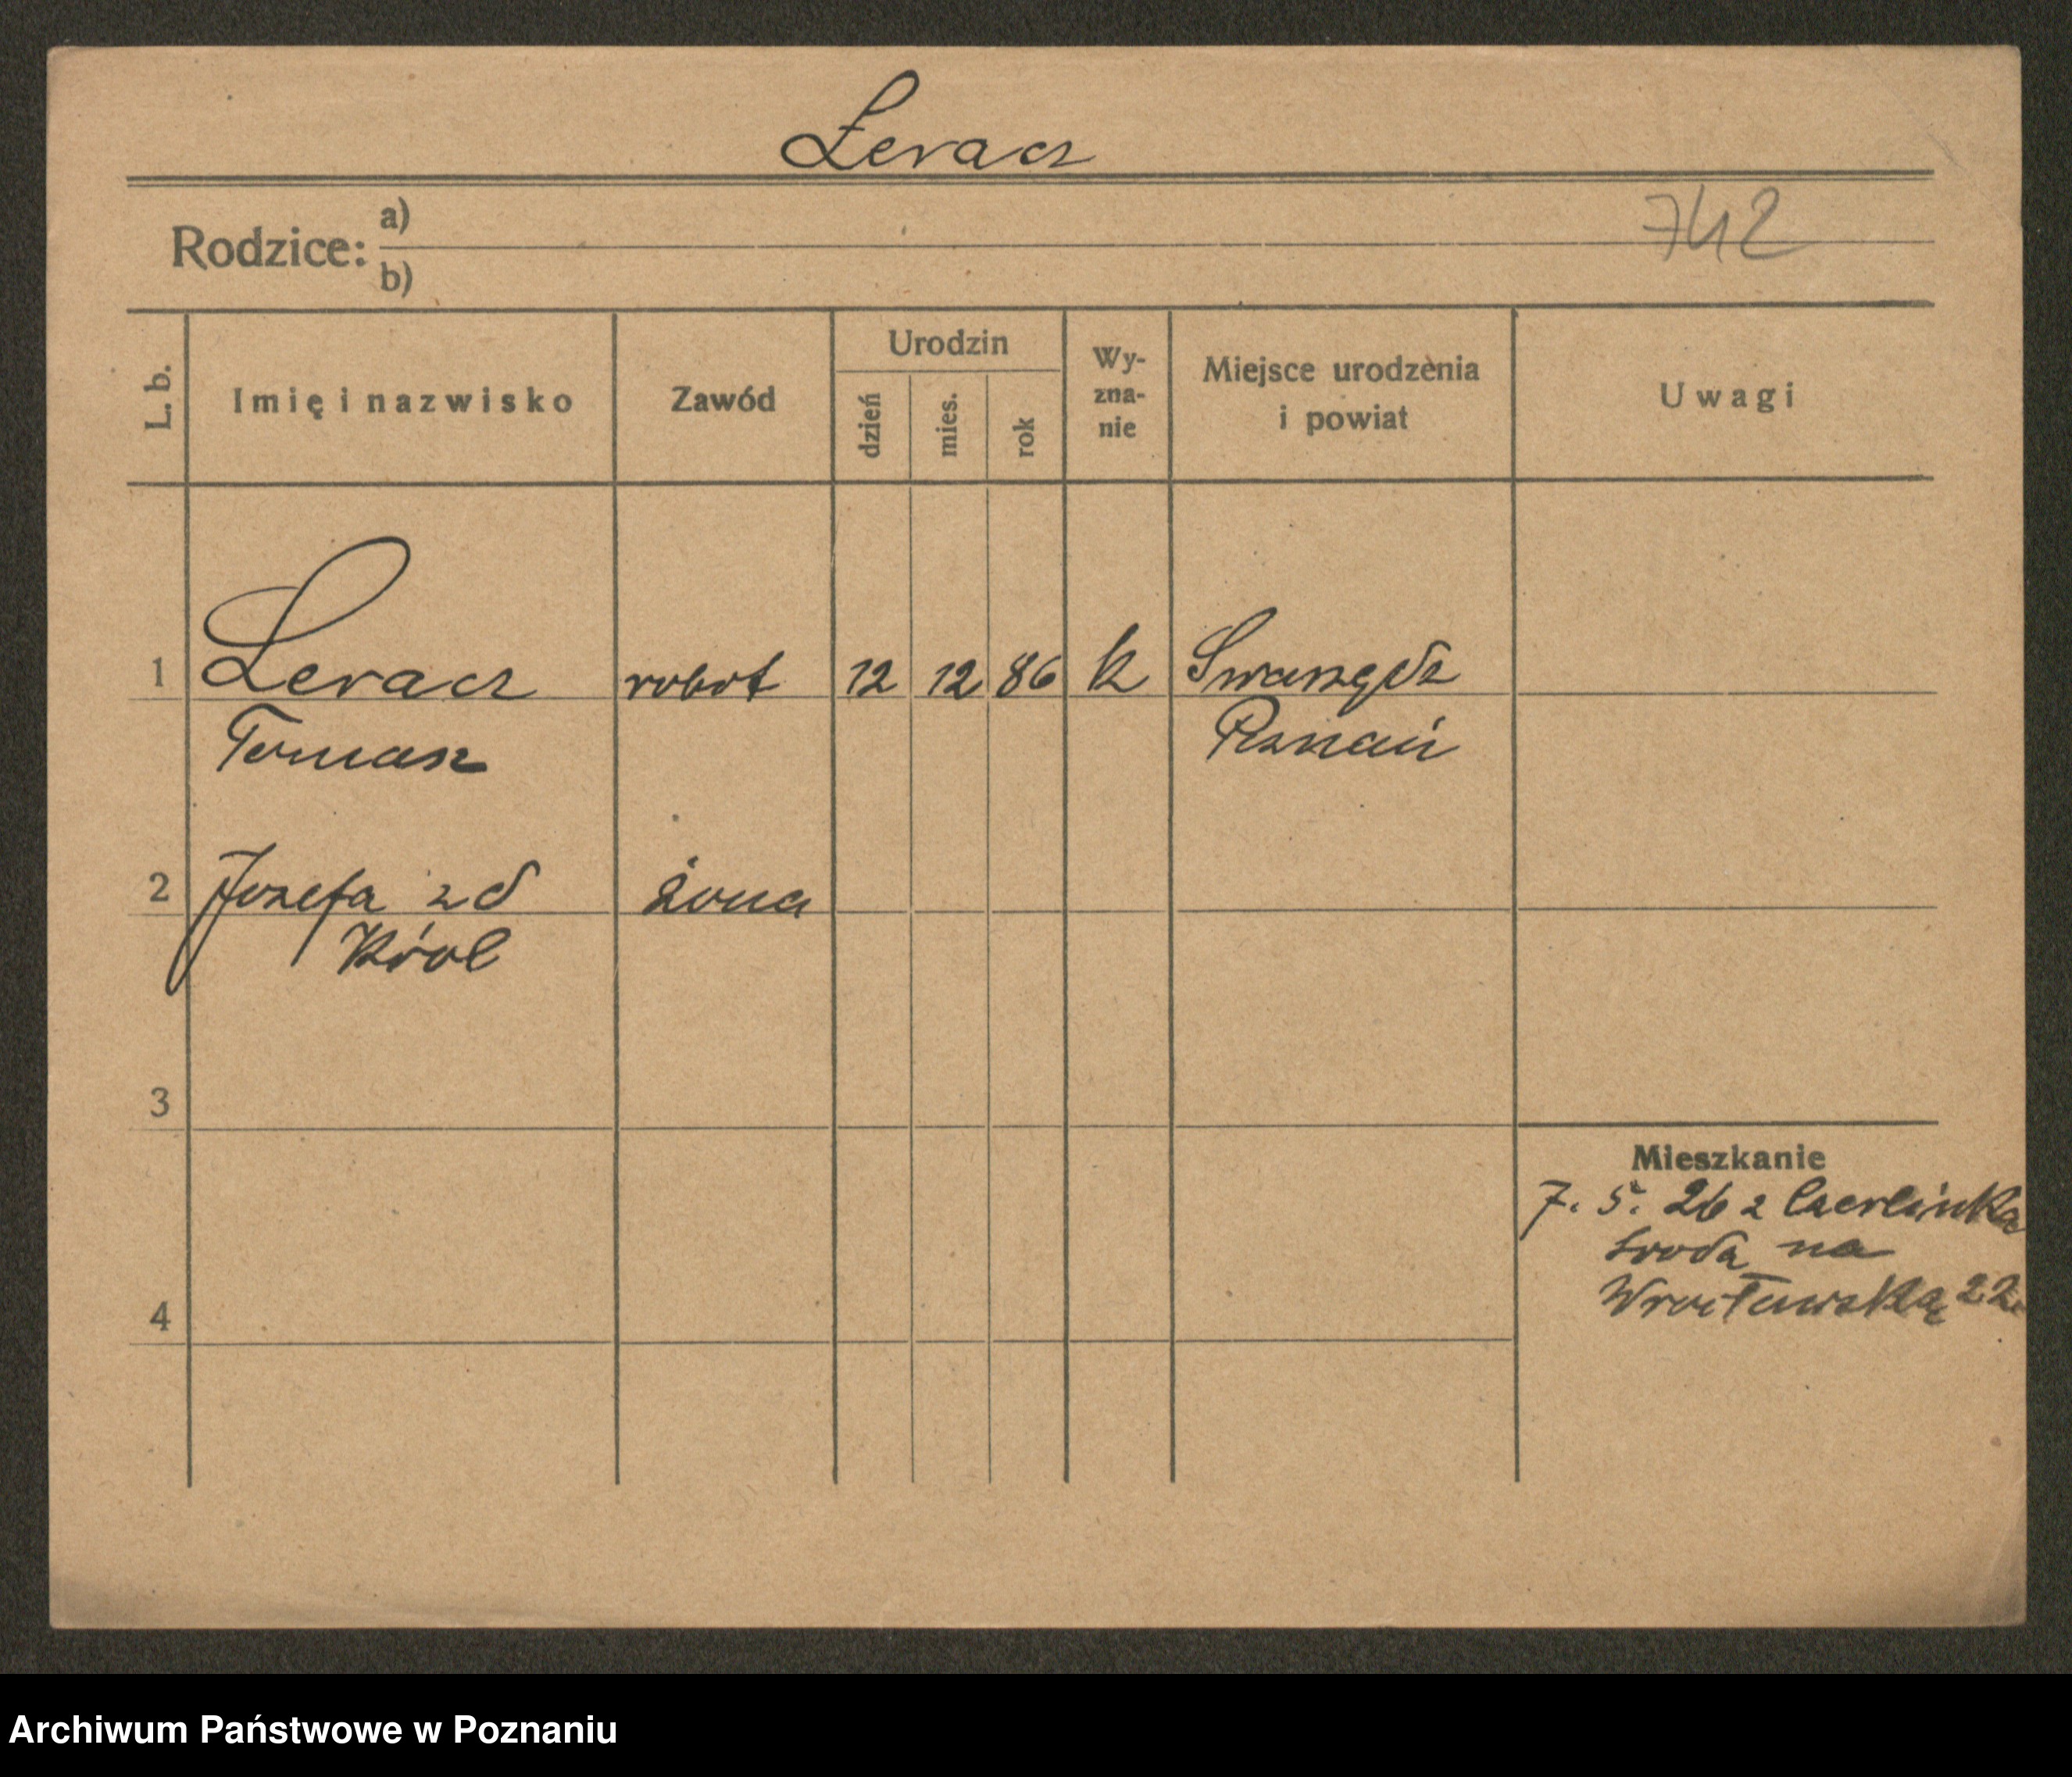 Leracz
Rodzice: a)
b)
742
L. b.
Imię i nazwisko
Zawód
Urodzin
dzień
mies.
rok
Wy-
zna-
nie
Miejsce urodzenia
i powiat
Uwagi
1 Leracz robot 12 12 86 k Swarzędz
Tomasz Poznań
2 Jozefa zd żona
Król
3
Mieszkanie
7. 5. 26 z
Środa na
4 Wrocławską 22
Archiwum Państwowe w Poznaniu